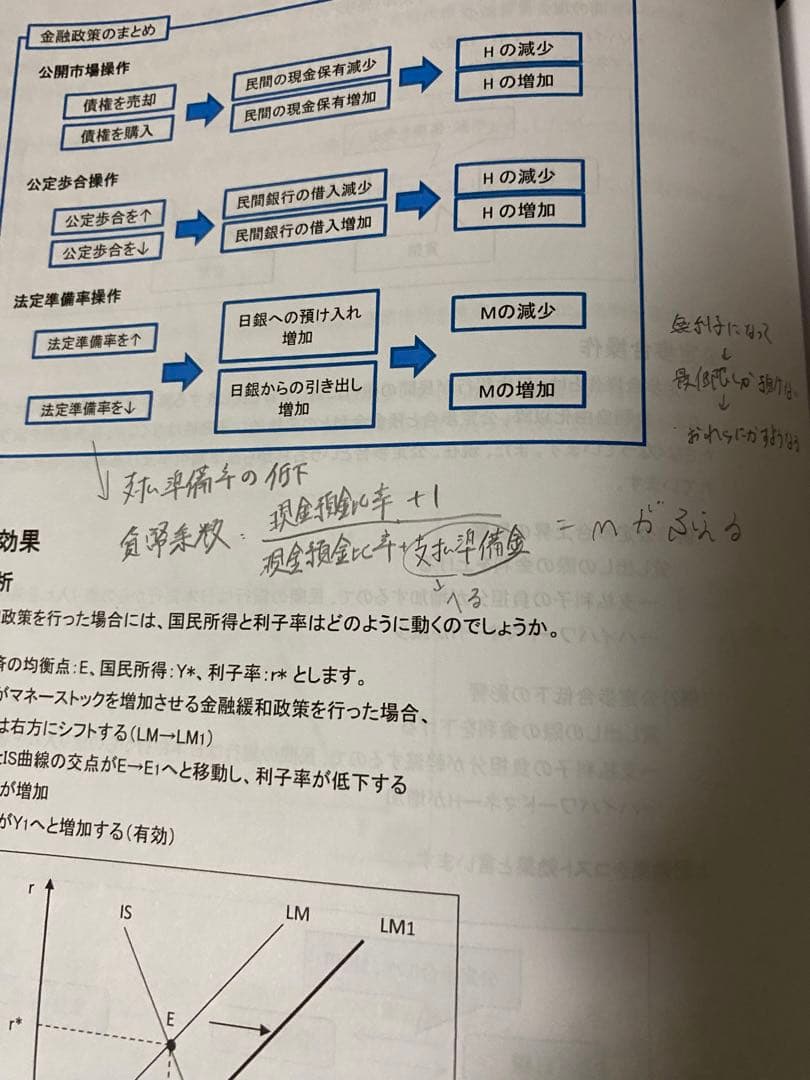 金融政策のまとめ
公開市場操作
債権を売却
債権を購入
民間の現金保有減少
民間の現金保有増加
Hの減少
Hの増加
公定歩合操作
公定歩合を↑
公定歩合を↓
民間銀行の借入減少
民間銀行の借入増加
Hの減少
Hの増加
法定準備率操作
法定準備率を↑
法定準備率を↓
日銀への預け入れ
増加
日銀からの引き出し
増加
Mの減少
Mの増加
無利子になって
↓
最低限しか預けない
↓
↓支払準備率の低下
貨幣乗数：現金預金比率+1
現金預金比率+支払準備金
=mがふえる
↓へる
効果
析
政策を行った場合には、国民所得と利子率はどのように動くのでしょうか。
の均衡点：E、国民所得：Y*、利子率：r* とします。
がマネーストックを増加させる金融緩和政策を行った場合、
は右方にシフトする(LM→LM1)
IS曲線の交点がE→E1へと移動し、利子率が低下する
が増加
がY1へと増加する(有効)
r
IS
LM
LM1
E
r*